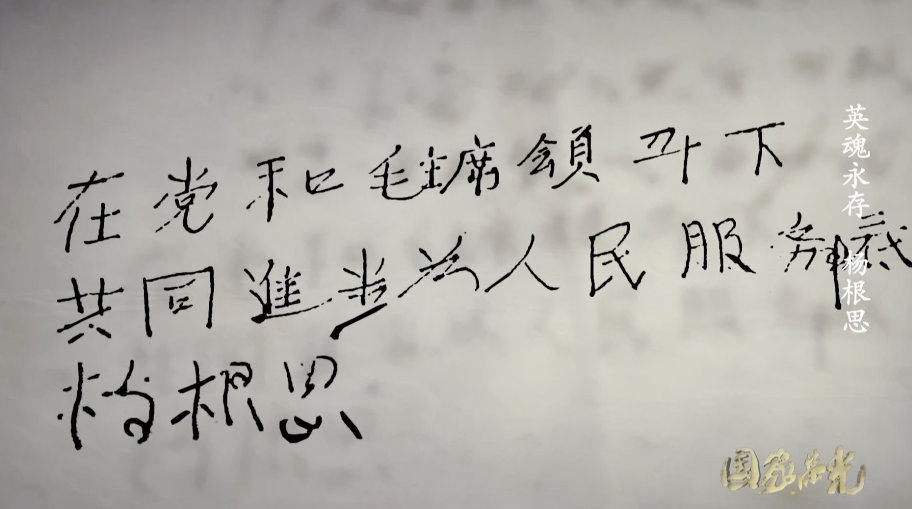 在党和毛主席領导下
共同進步为人民服务
杨根思
英魂永存 杨根思
国家荣光